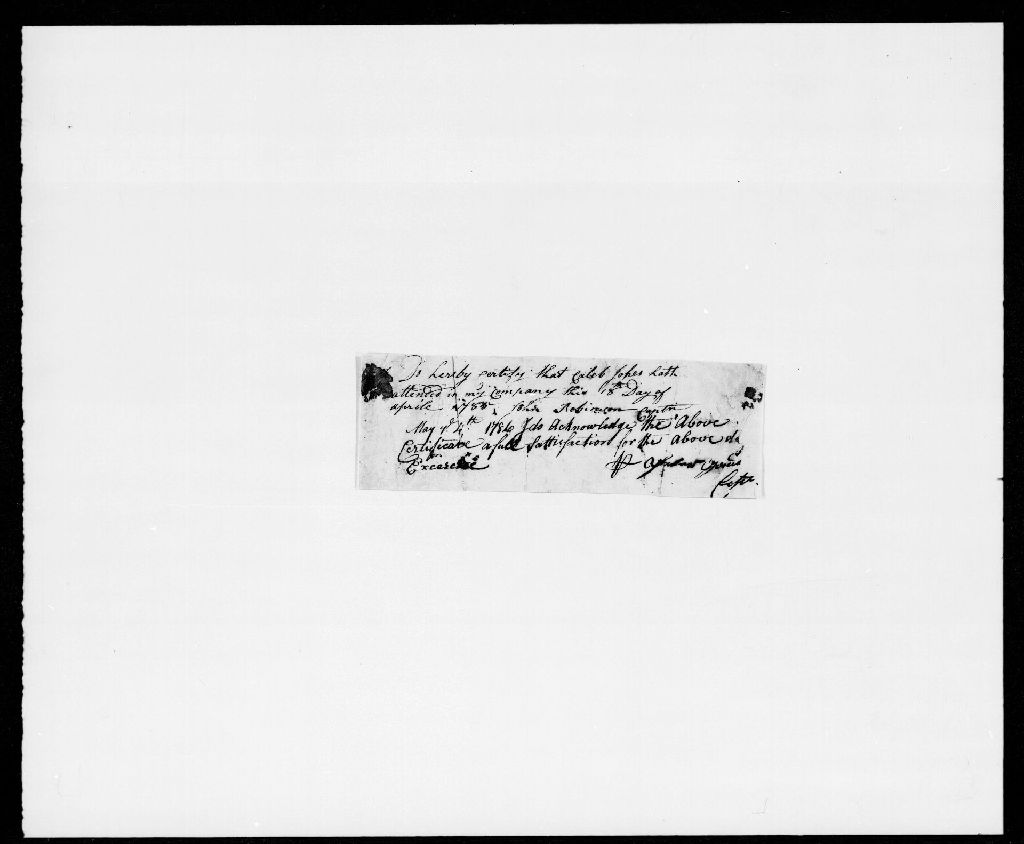 Ds hereby certify that Caleb Jones hath
attended in my Company this 18th Day of
Aprile 1785 John Robinson Captn
May ye 4th 1786 I do Acknowledge the Above
Certificate a full Sattisfaction for the Above
Excercise